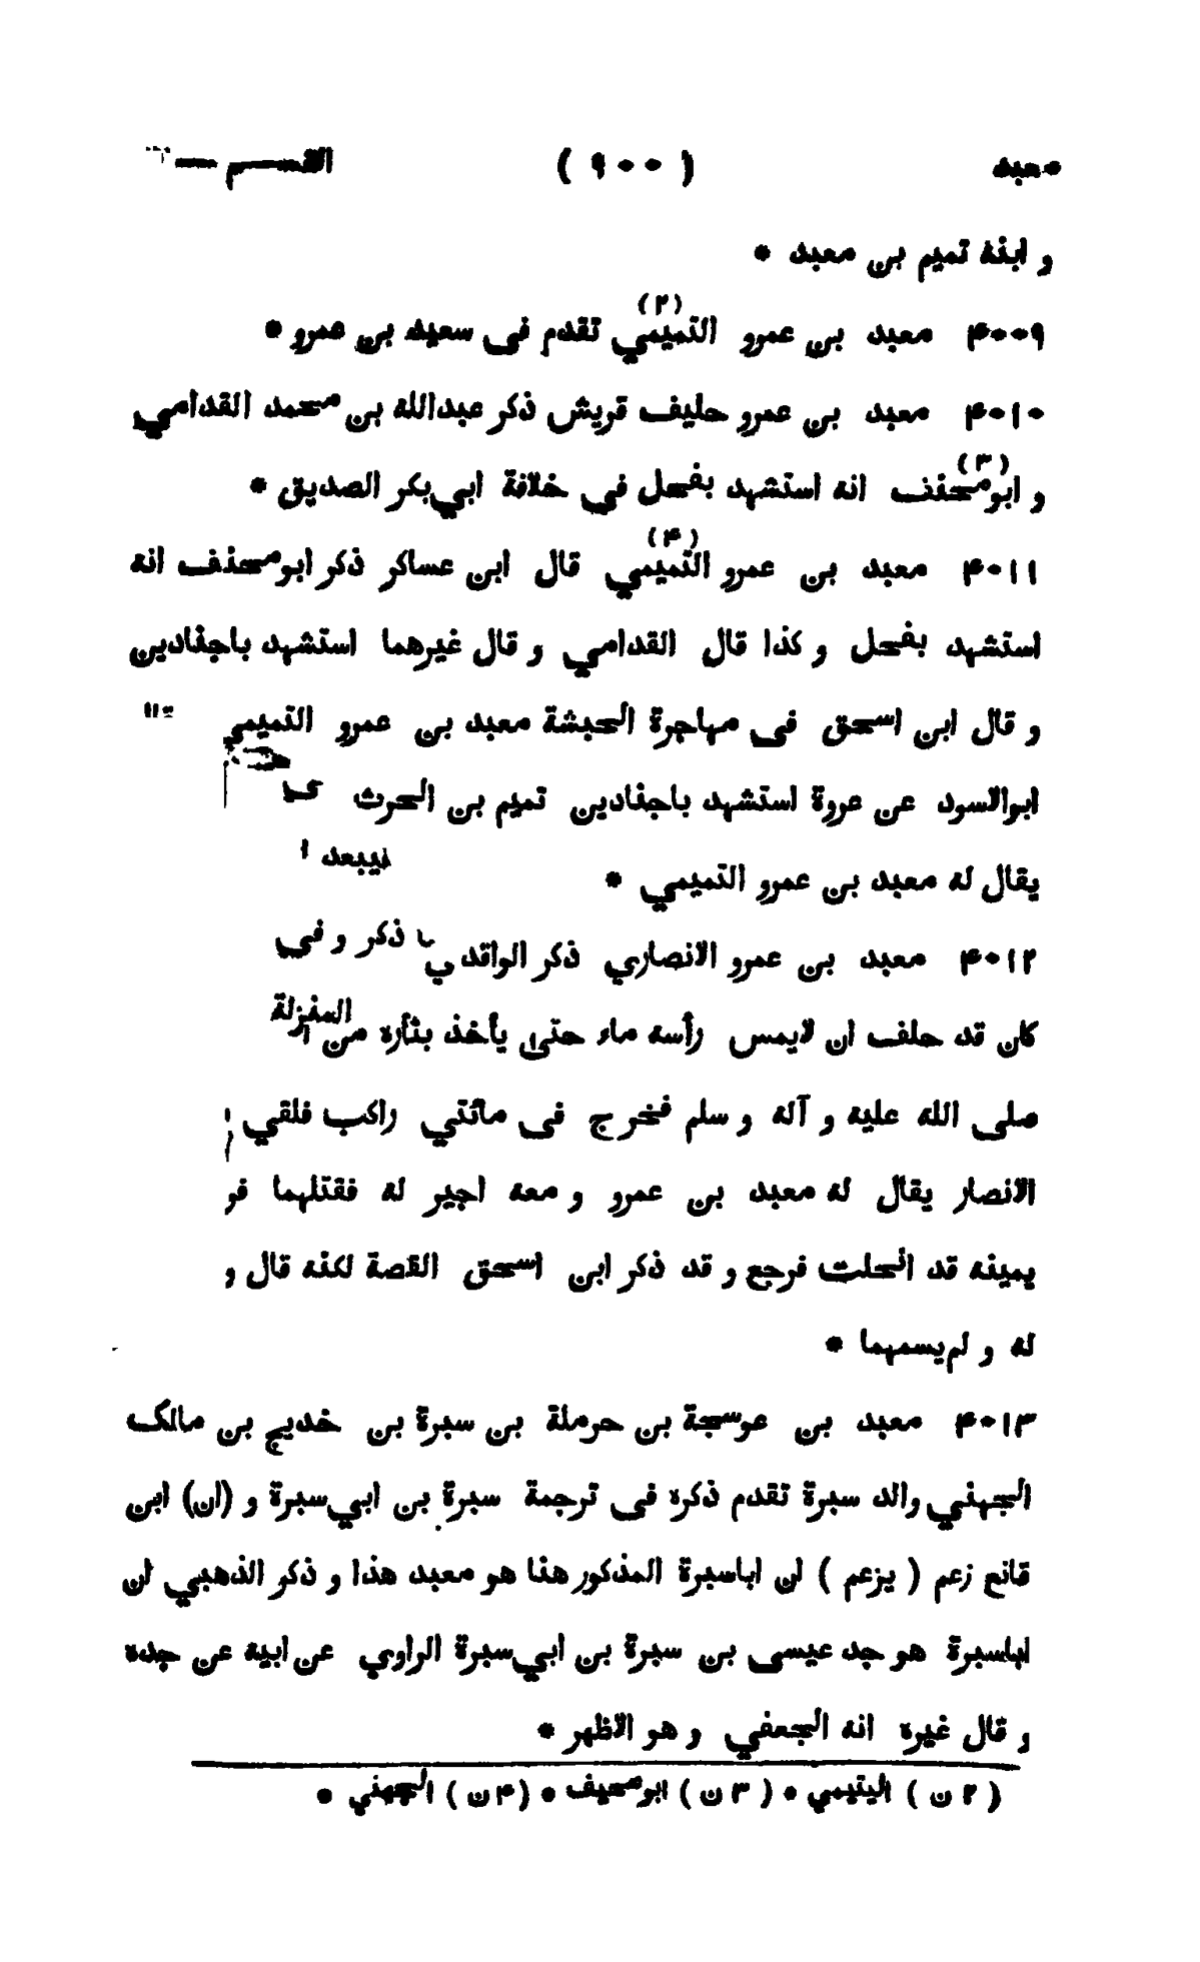 معبد ( ٩٠٠ ) القسم
و ابنه تميم بن معبد *
۴۰۰۹ معبد بن عمرو التميمي (۲) تقدم فى سعيد بن عمرو *
۴۰۱۰ معبد بن عمرو حليف قريش ذكر عبدالله بن محمد القدامي
و ابومخنف (۳) انه استشهد بفحل في خلافة ابي بكر الصديق *
۴۰۱۱ معبد بن عمرو التميمي (۴) قال ابن عساكر ذكر ابومخنف انه
استشهد بفحل و كذا قال القدامي و قال غيرهما استشهد باجنادين
و قال ابن اسحق فى مهاجرة الحبشة معبد بن عمرو التميمي
ابوالاسود عن عروة استشهد باجنادين تميم بن الحرث
يقال له معبد بن عمرو التميمي *
۴۰۱۲ معبد بن عمرو الانصاري ذكر الواقدي ذكر و في
كان قد حلف ان لايمس رأسه ماء حتى يأخذ بثأره من
صلى الله عليه و آله و سلم فخرج فى مائتي راكب فلقي
الانصار يقال له معبد بن عمرو و معه اجير له فقتلهما فر
يمينه قد انحلت فرجع و قد ذكر ابن اسحق القصة لكنه قال و
له و لم يسمهما *
۴۰۱۳ معبد بن عوسجة بن حرملة بن سبرة بن خديج بن مالک
الجهني والد سبرة تقدم ذكره فى ترجمة سبرة بن ابي سبرة و (ان) ابن
قانع زعم ( يزعم ) ان اباسبرة المذكور هنا هو معبد هذا و ذكر الذهبي ان
اباسبرة هو جد عيسى بن سبرة بن ابي سبرة الراوي عن ابيه عن جده
و قال غيره انه الجعفي و هو الاظهر *
( ۲ ن ) اليتيمي * ( ۳ ن ) ابومحيف * (۴ ن ) الجهني *